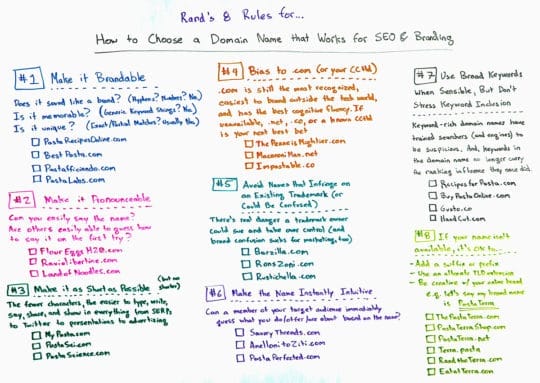 Rand's 8 Rules for...
How to Choose a Domain Name that Works for SEO & Branding
#1 Make it Brandable
Does it sound like a brand? (Hyphens? Numbers? No)
Is it memorable? (Generic Keyword Strings? No)
Is it unique? (Exact/Partial Matches? Usually No)
PastaRecipesOnline.com
BestPasta.com
PastaAficionado.com
PastaLabs.com
#2 Make it Pronounceable
Can you easily say the name?
Are others easily able to guess how
to say it on the first try?
FlourEggsH20.com
Raviolibertine.com
LandofNoodles.com
#3 Make it as Short as Possible (but no
shorter)
The fewer characters, the easier to type, write,
say, share, and show in everything from SERPs
to Twitter to presentations to advertising
MyPasta.com
PastaSci.com
PastaScience.com
#4 Bias to .com (or your CCTLD)
.com is still the most recognized,
easiest to brand outside the tech world,
and has the best cognitive fluency. If
unavailable, .net, .co, or a known ccTLD
is your next best bet
ThePenneisMightier.com
MacaroniMan.net
Impastable.co
#5 Avoid Names that Infringe on
an Existing Trademark (or
Could Be Confused)
There's real danger a trademark owner
could sue and take over control (and
brand confusion sucks for marketing, too)
Barzilla.com
RonsZoni.com
Rustichalla.com
#6 Make the Name Instantly Intuitive
Can a member of your target audience immediately
guess what you do/offer/are about based on the name?
SavoryThreads.com
AnellonitoZiti.com
PastaPerfected.com
#7 Use Broad Keywords
When Sensible, But Don't
Stress Keyword Inclusion
Keyword-rich domain names have
trained searchers (and engines) to
be suspicious. And, keywords in
the domain name no longer carry
the ranking influence they once did.
RecipesforPasta.com
BuyPastaOnline.com
Gusto.co
HandCut.com
#8 If your name isn't
available, it's OK to...
- Add a suffix or prefix
- Use an alternate TLD extension
- Be creative w/ your entire brand
e.g. let's say my brand name
is PastaTerra
ThePastaTerra.com
PastaTerraShop.com
PastaTerra.net
Terra.pasta
ReadtheTerra.com
EatatTerra.com